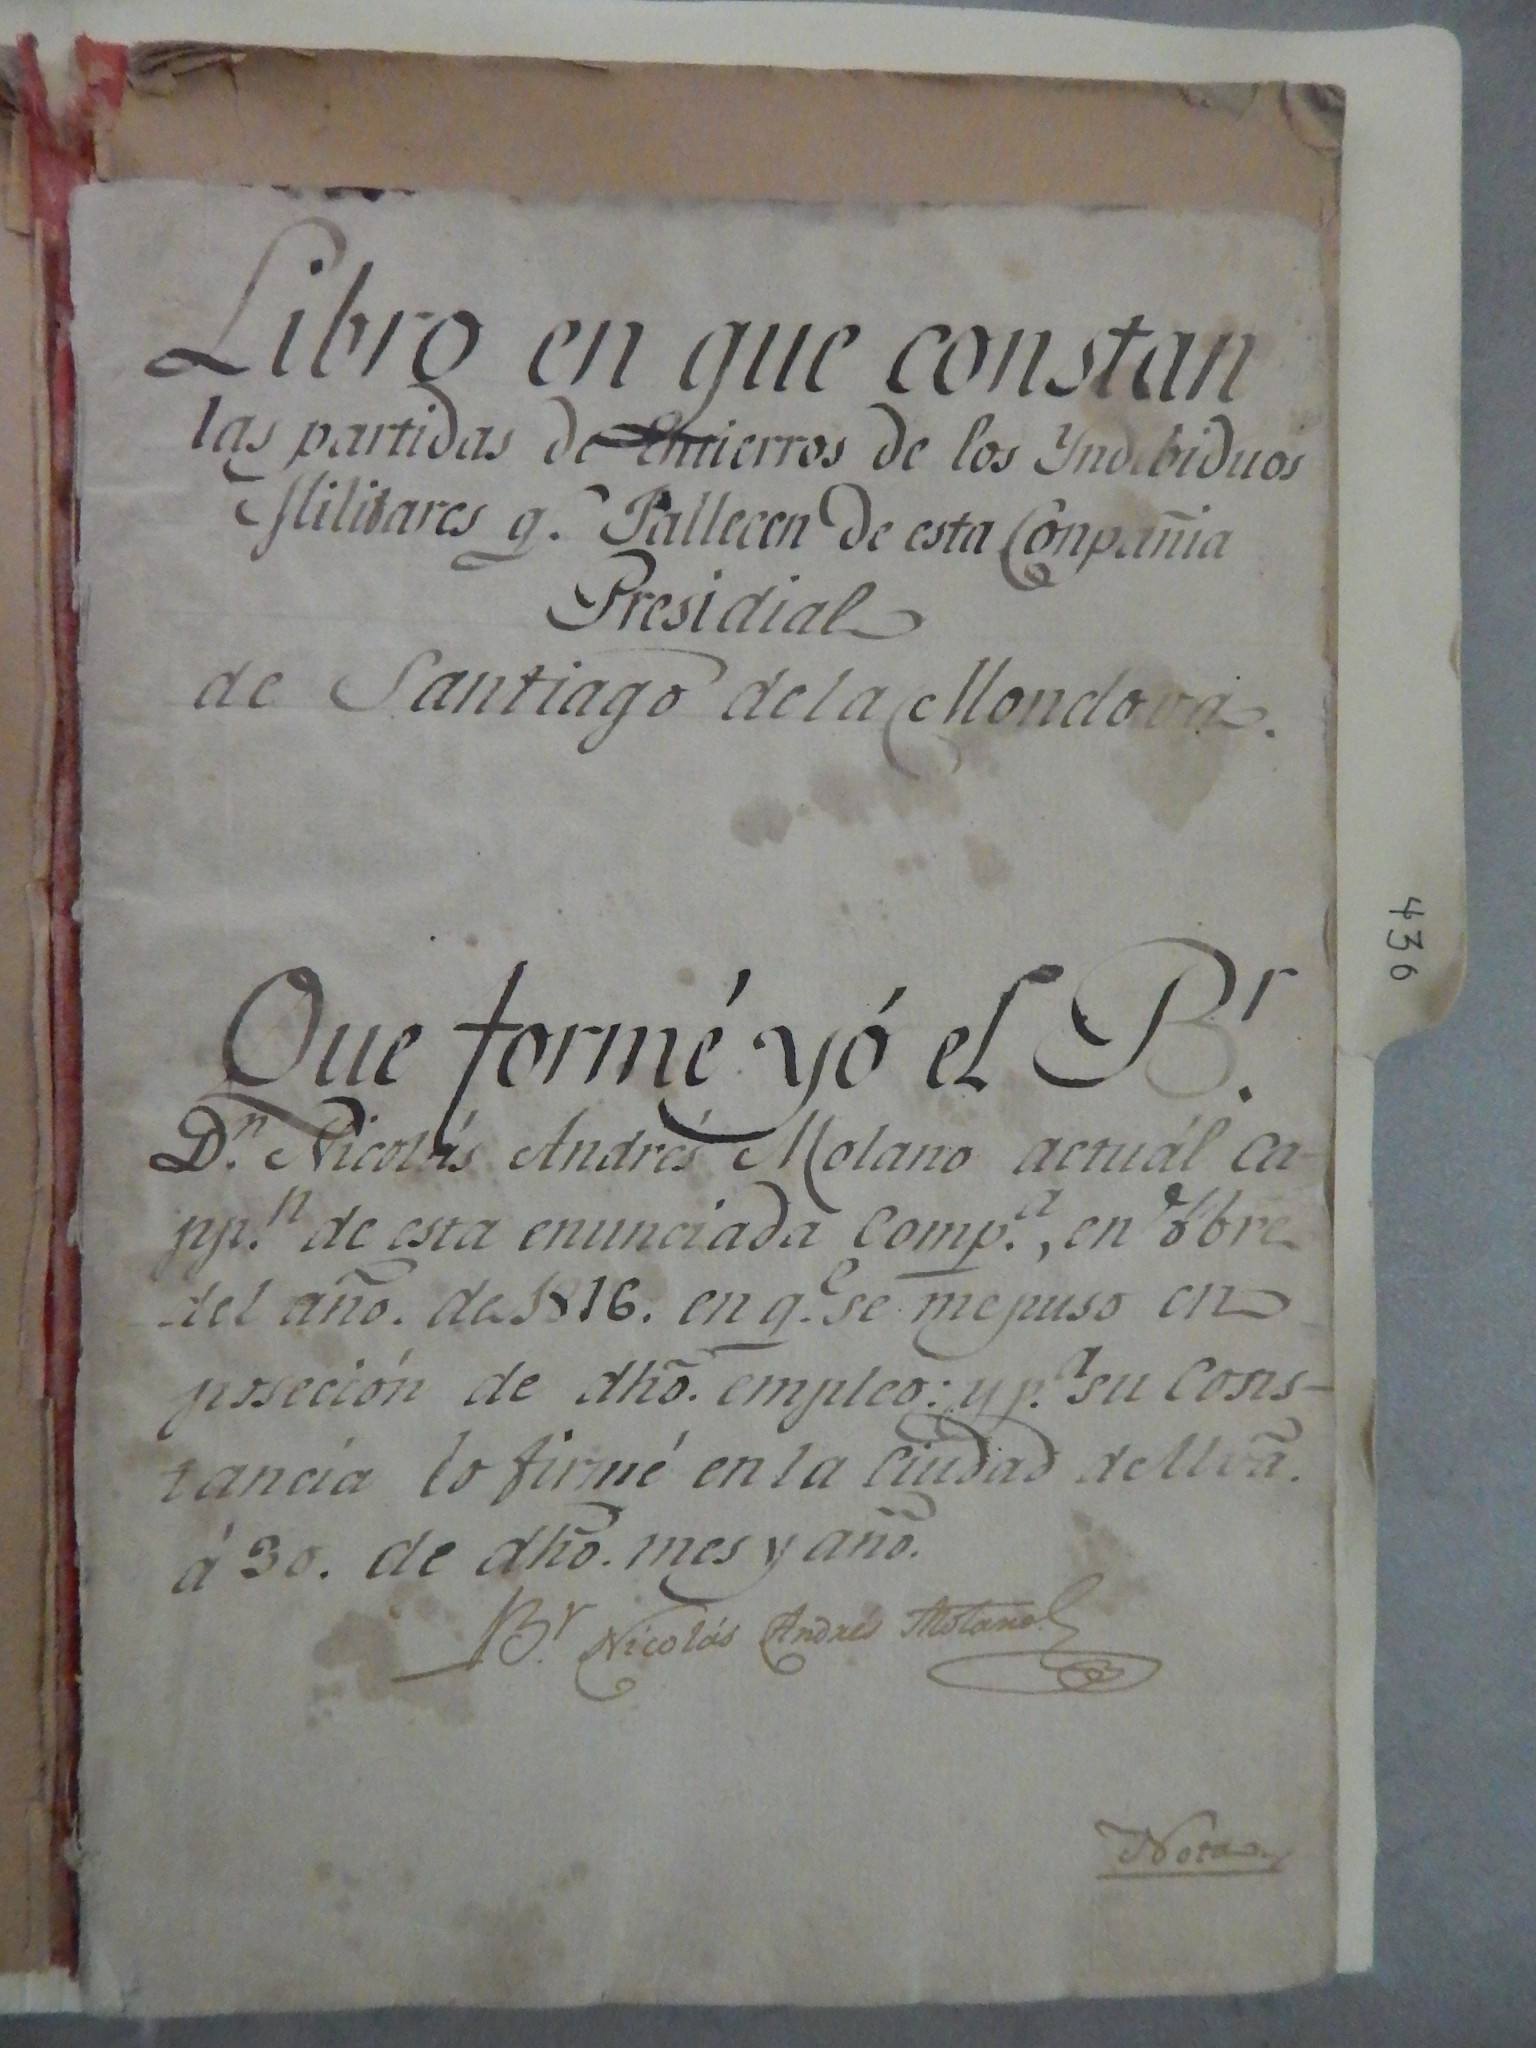 Libro en que constan
las partidas de entierros de los Yndibiduos
Militares q. Fallecen de esta Conpañia
Presidial
de Santiago de la Monclova.
Que formé yó el Br.
Dn. Nicolás Andrés Molano actuál Ca-
ppn. de esta enunciada Compa., en bre
del año. de 1816. en qe. se me puso en
poseción de dho. empleo: y pa. su Cons-
tancia lo firmé en la Ciudad de Mvã.
á 30. de dho. mes y año.
Br. Nicolás Andrés Molano
Nota
436